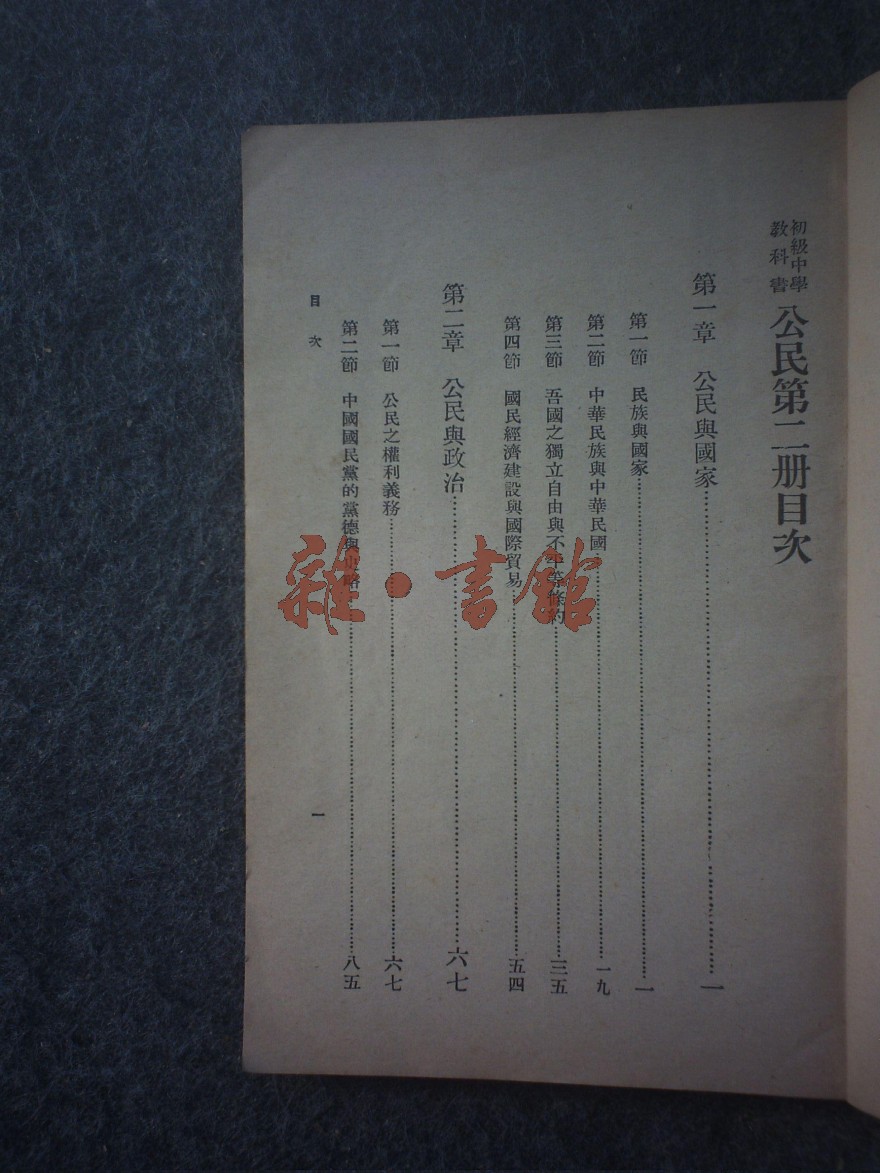 初級中學
教科書
公民第二册目次
第一章 公民與國家…………一
第一節 民族與國家…………一
第二節 中華民族與中華民國…………一九
第三節 吾國之獨立自由與不平等條約…………三五
第四節 國民經濟建設與國際貿易…………五四
第二章 公民與政治…………六七
第一節 公民之權利義務…………六七
第二節 中國國民黨的黨德與史略…………八五
目次
一
雜·書館